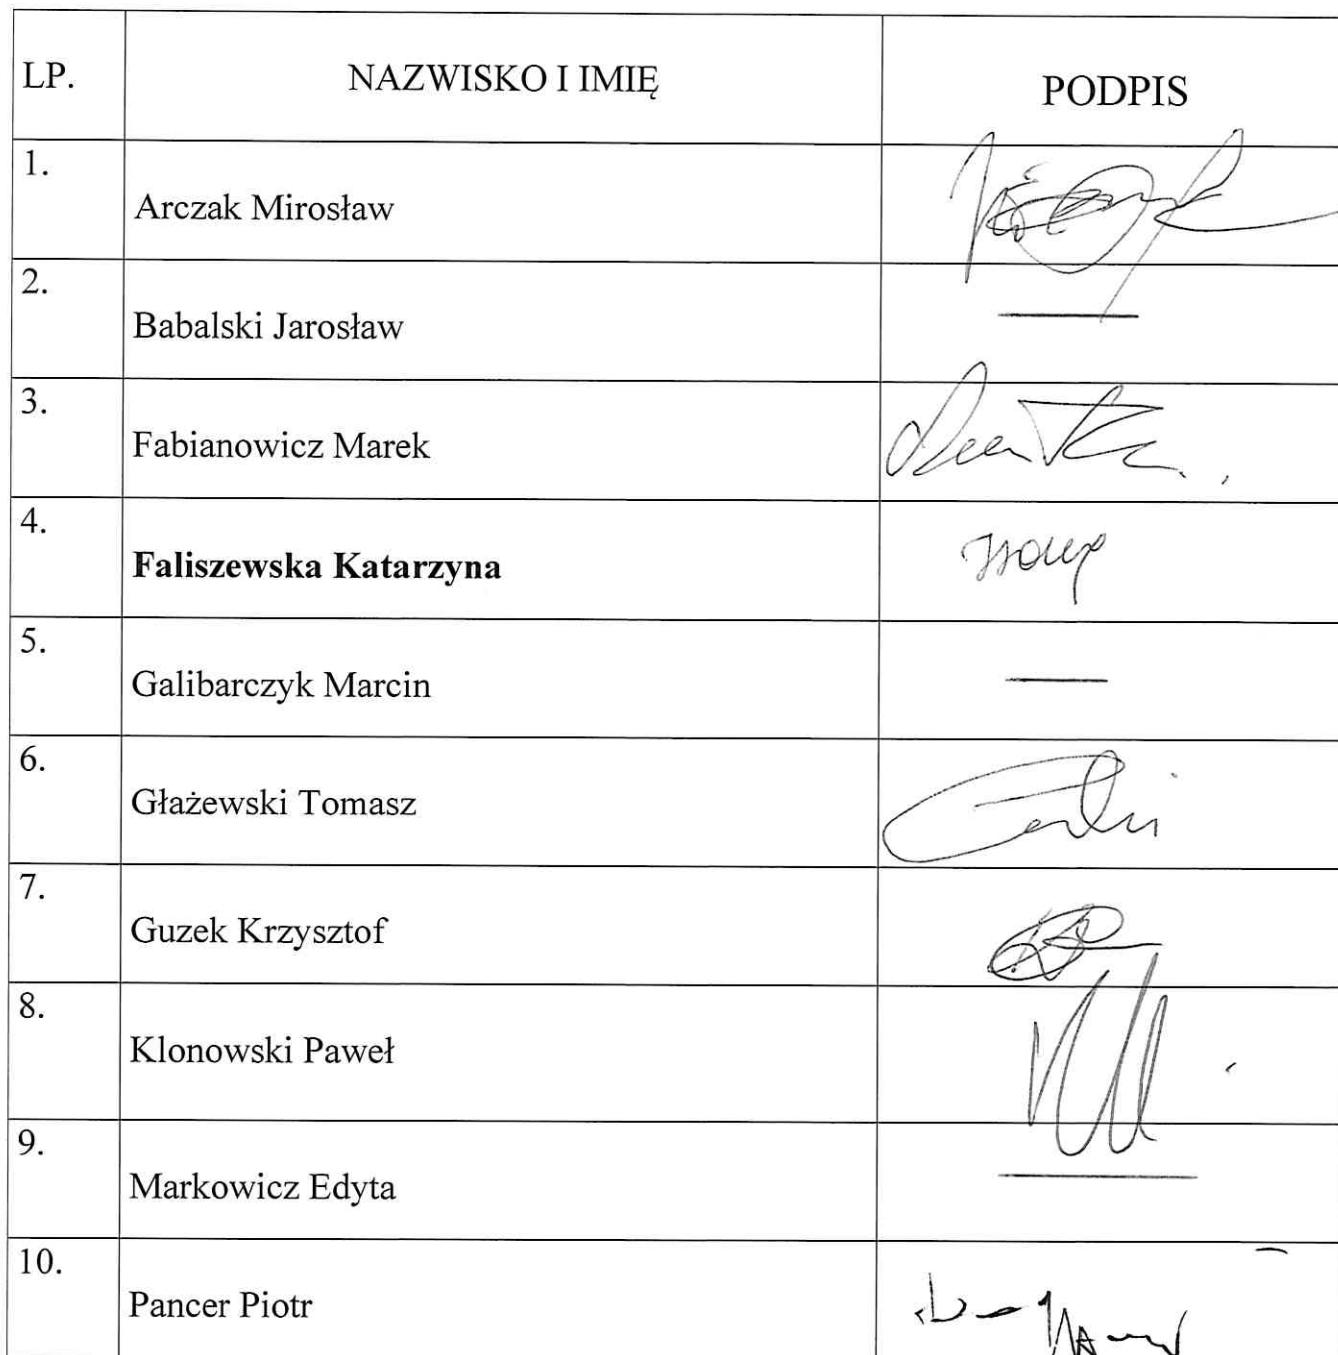 LP. NAZWISKO I IMIĘ PODPIS
1. Arczak Mirosław
2. Babalski Jarosław
3. Fabianowicz Marek
4. Faliszewska Katarzyna
5. Galibarczyk Marcin
6. Głażewski Tomasz
7. Guzek Krzysztof
8. Klonowski Paweł
9. Markowicz Edyta
10. Pancer Piotr